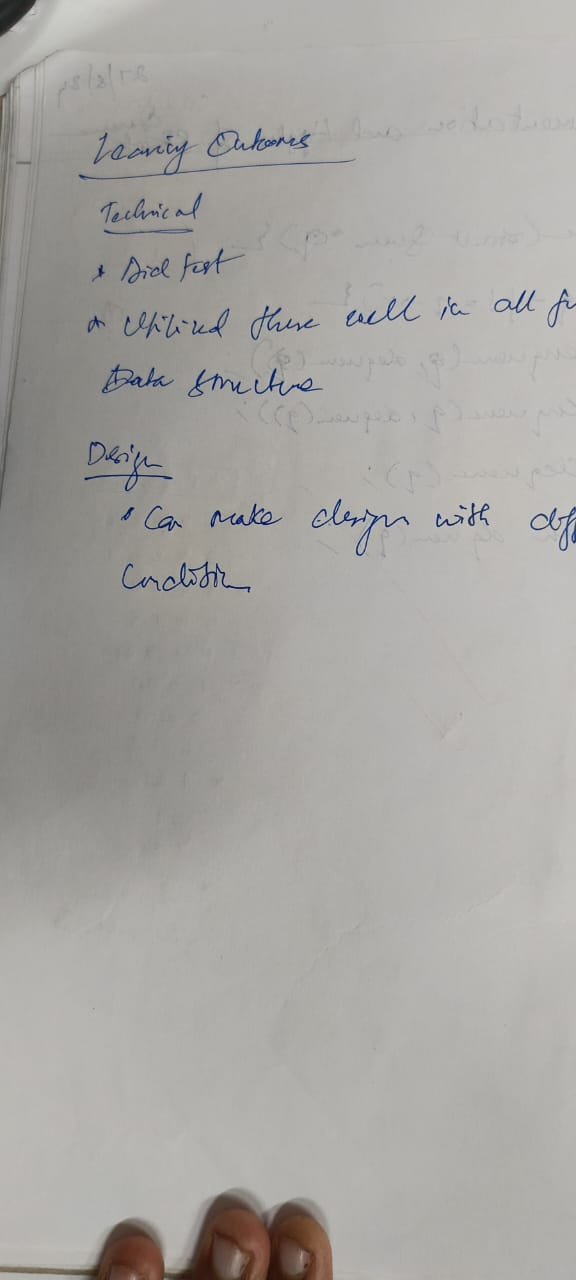 Learning Outcomes
Technical
* Did fast
* Utilized these well in all fu
Data Structure
Design
* Can make design with diff
Condition